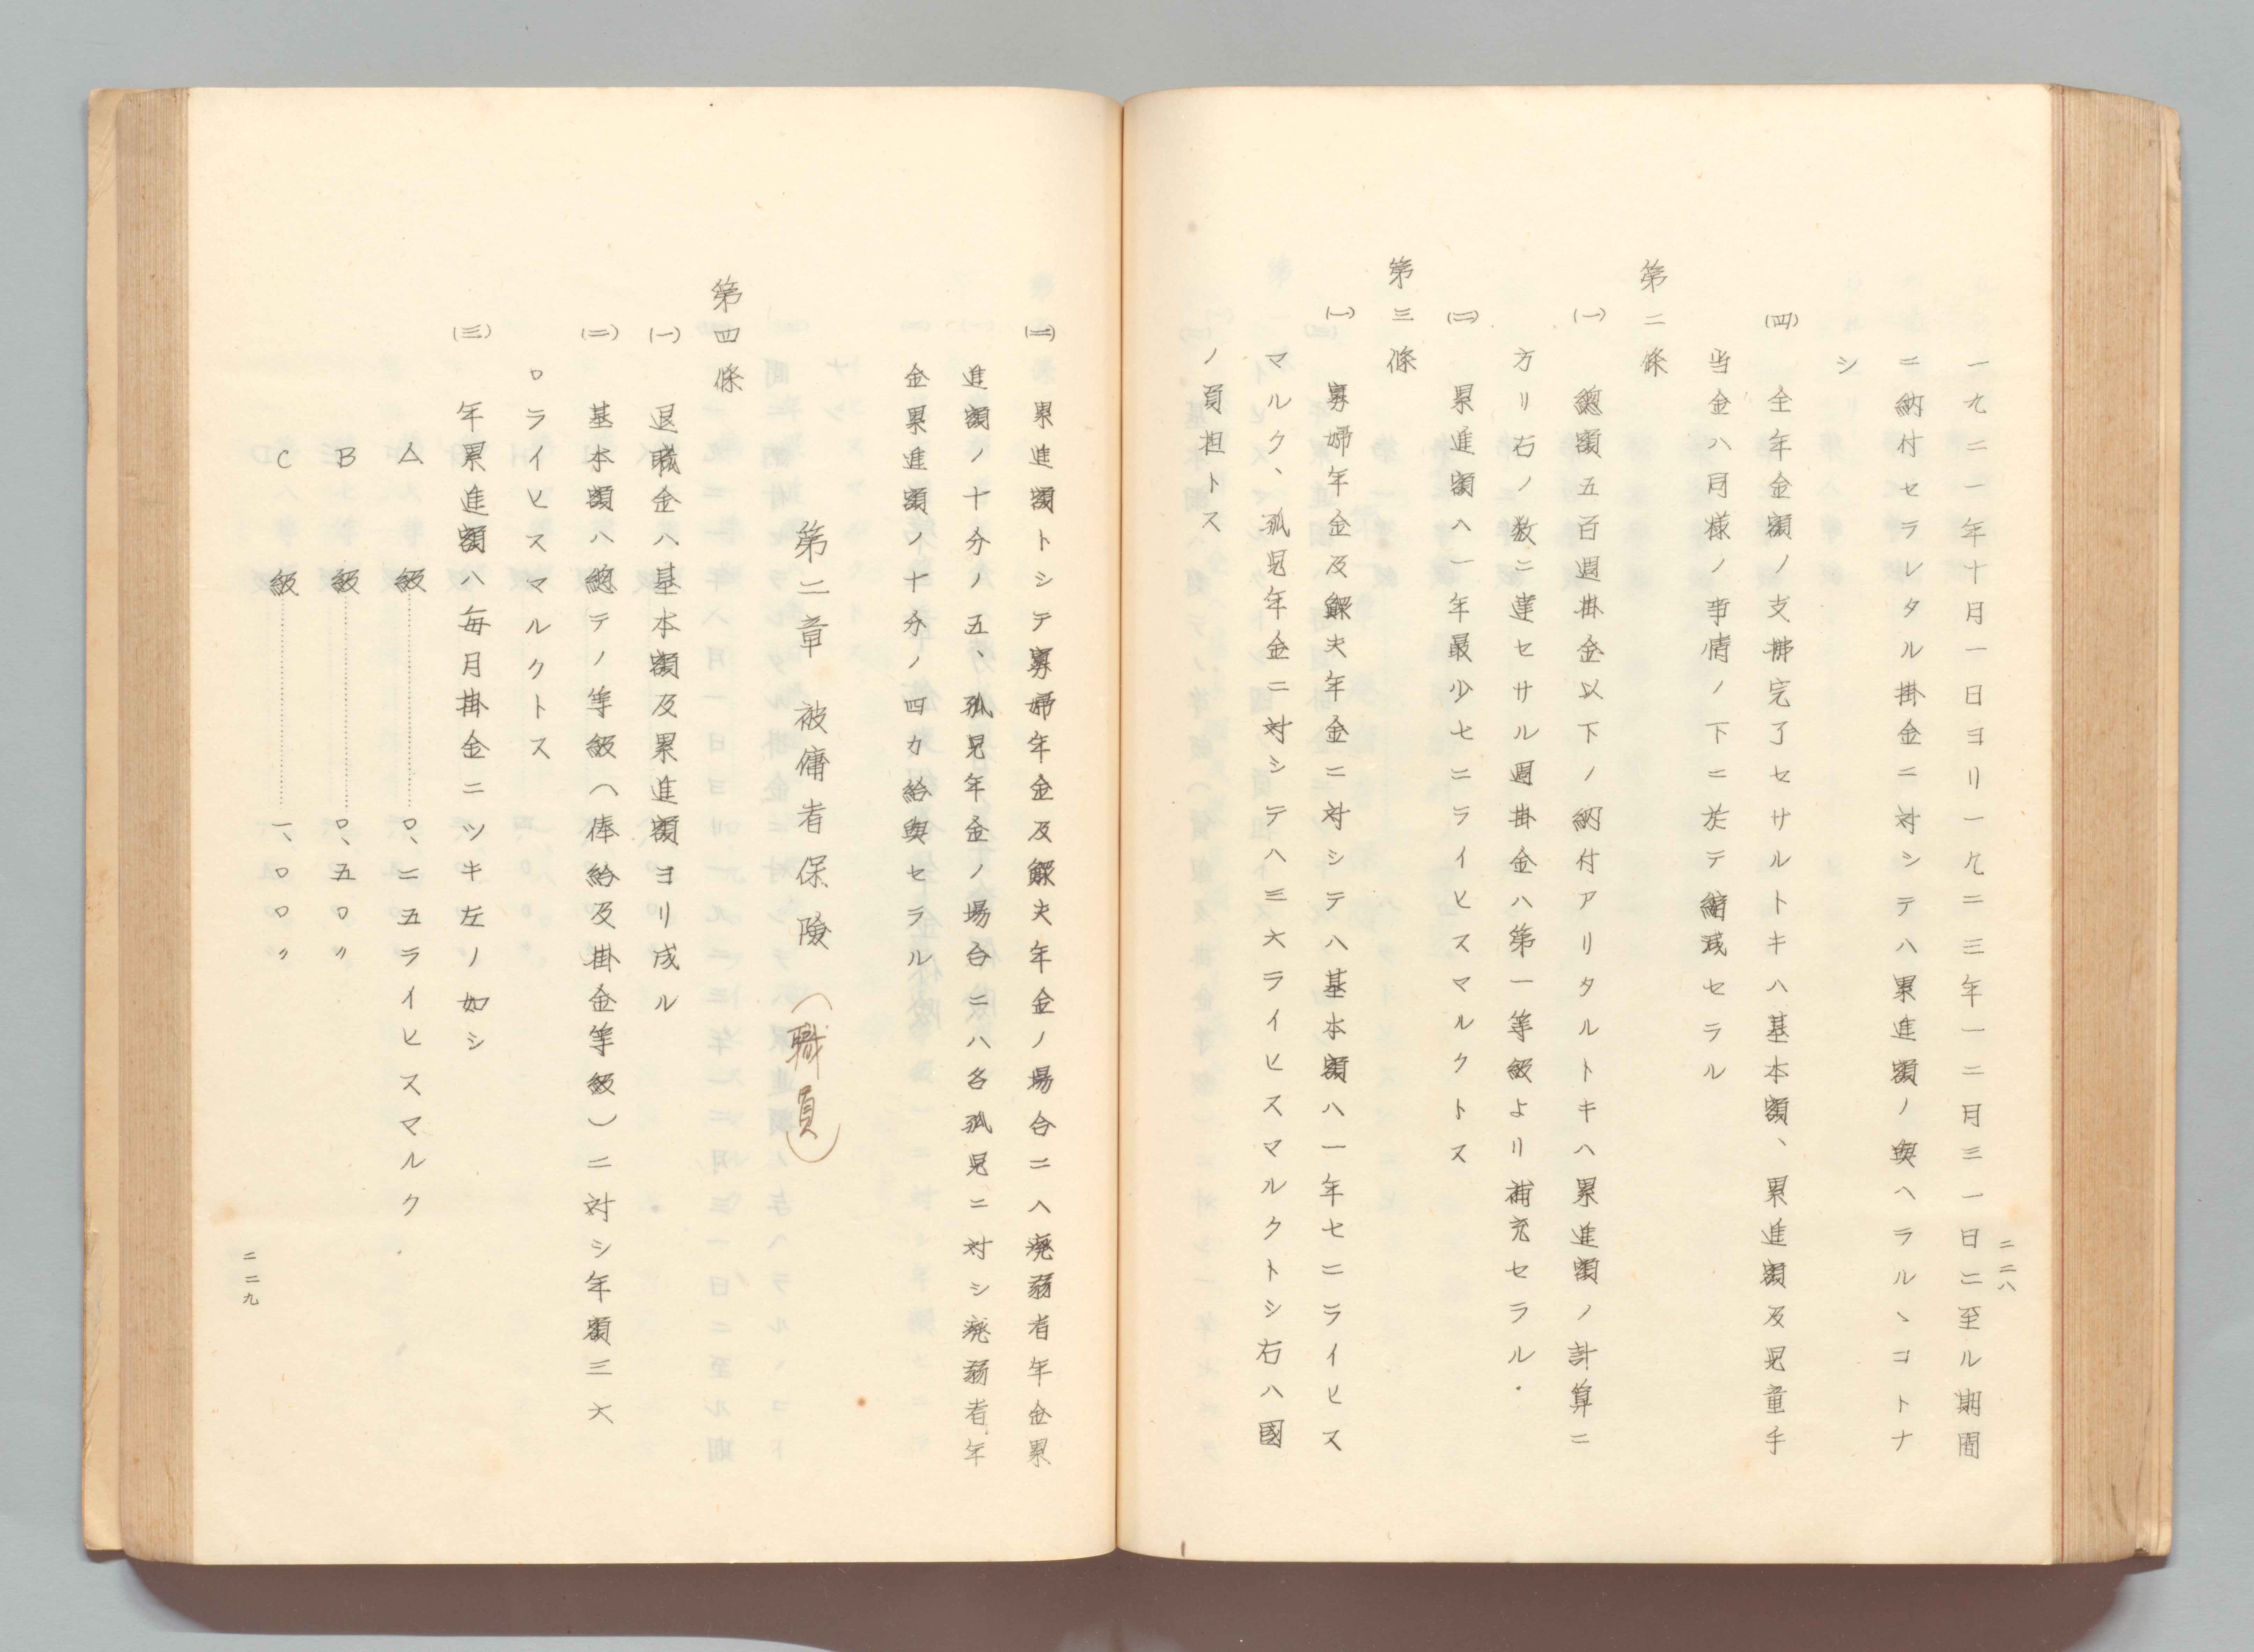 一九二一年十月一日ヨリ一九二三年一二月三一日ニ至ル期間
ニ納付セラレタル掛金ニ対シテハ累進額ノ與ヘラルヽコトナ
シ
(四) 全年金額ノ支拂完了セサルトキハ基本額、累進額及児童手
当金ハ同様ノ事情ノ下ニ於テ縮减セラル
第二條
(一) 總額五百週掛金以下ノ納付アリタルトキハ累進額ノ計算ニ
方リ右ノ数ニ達セサル週掛金ハ第一等級より補充セラル.
(二) 累進額ハ一年最少七ニライヒスマルクトス
第三條
(一) 寡婦年金及鰥夫年金ニ対シテハ基本額ハ一年七ニライヒス
マルク、孤児年金ニ対シテハ三六ライヒスマルクトシ右ハ國
ノ負担トス
二二八
(二) 累進額トシテ寡婦年金及鰥夫年金ノ場合ニハ廃弱者年金累
進額ノ十分ノ五、孤児年金ノ場合ニハ各孤児ニ対シ廃弱者年
金累進額ノ十分ノ四カ給與セラル
第二章 被傭者保險(職員)
第四條
(一) 退職金ハ基本額及累進額ヨリ成ル
(二) 基本額ハ總テノ等級(俸給及掛金等級)ニ対シ年額三六
〇ライヒスマルクトス
(三) 年累進額ハ毎月掛金ニツキ左ノ如シ
A 級……………〇、二五ライヒスマルク
B 級……………〇、五〇〃
C 級……………一、〇〇〃
二二九